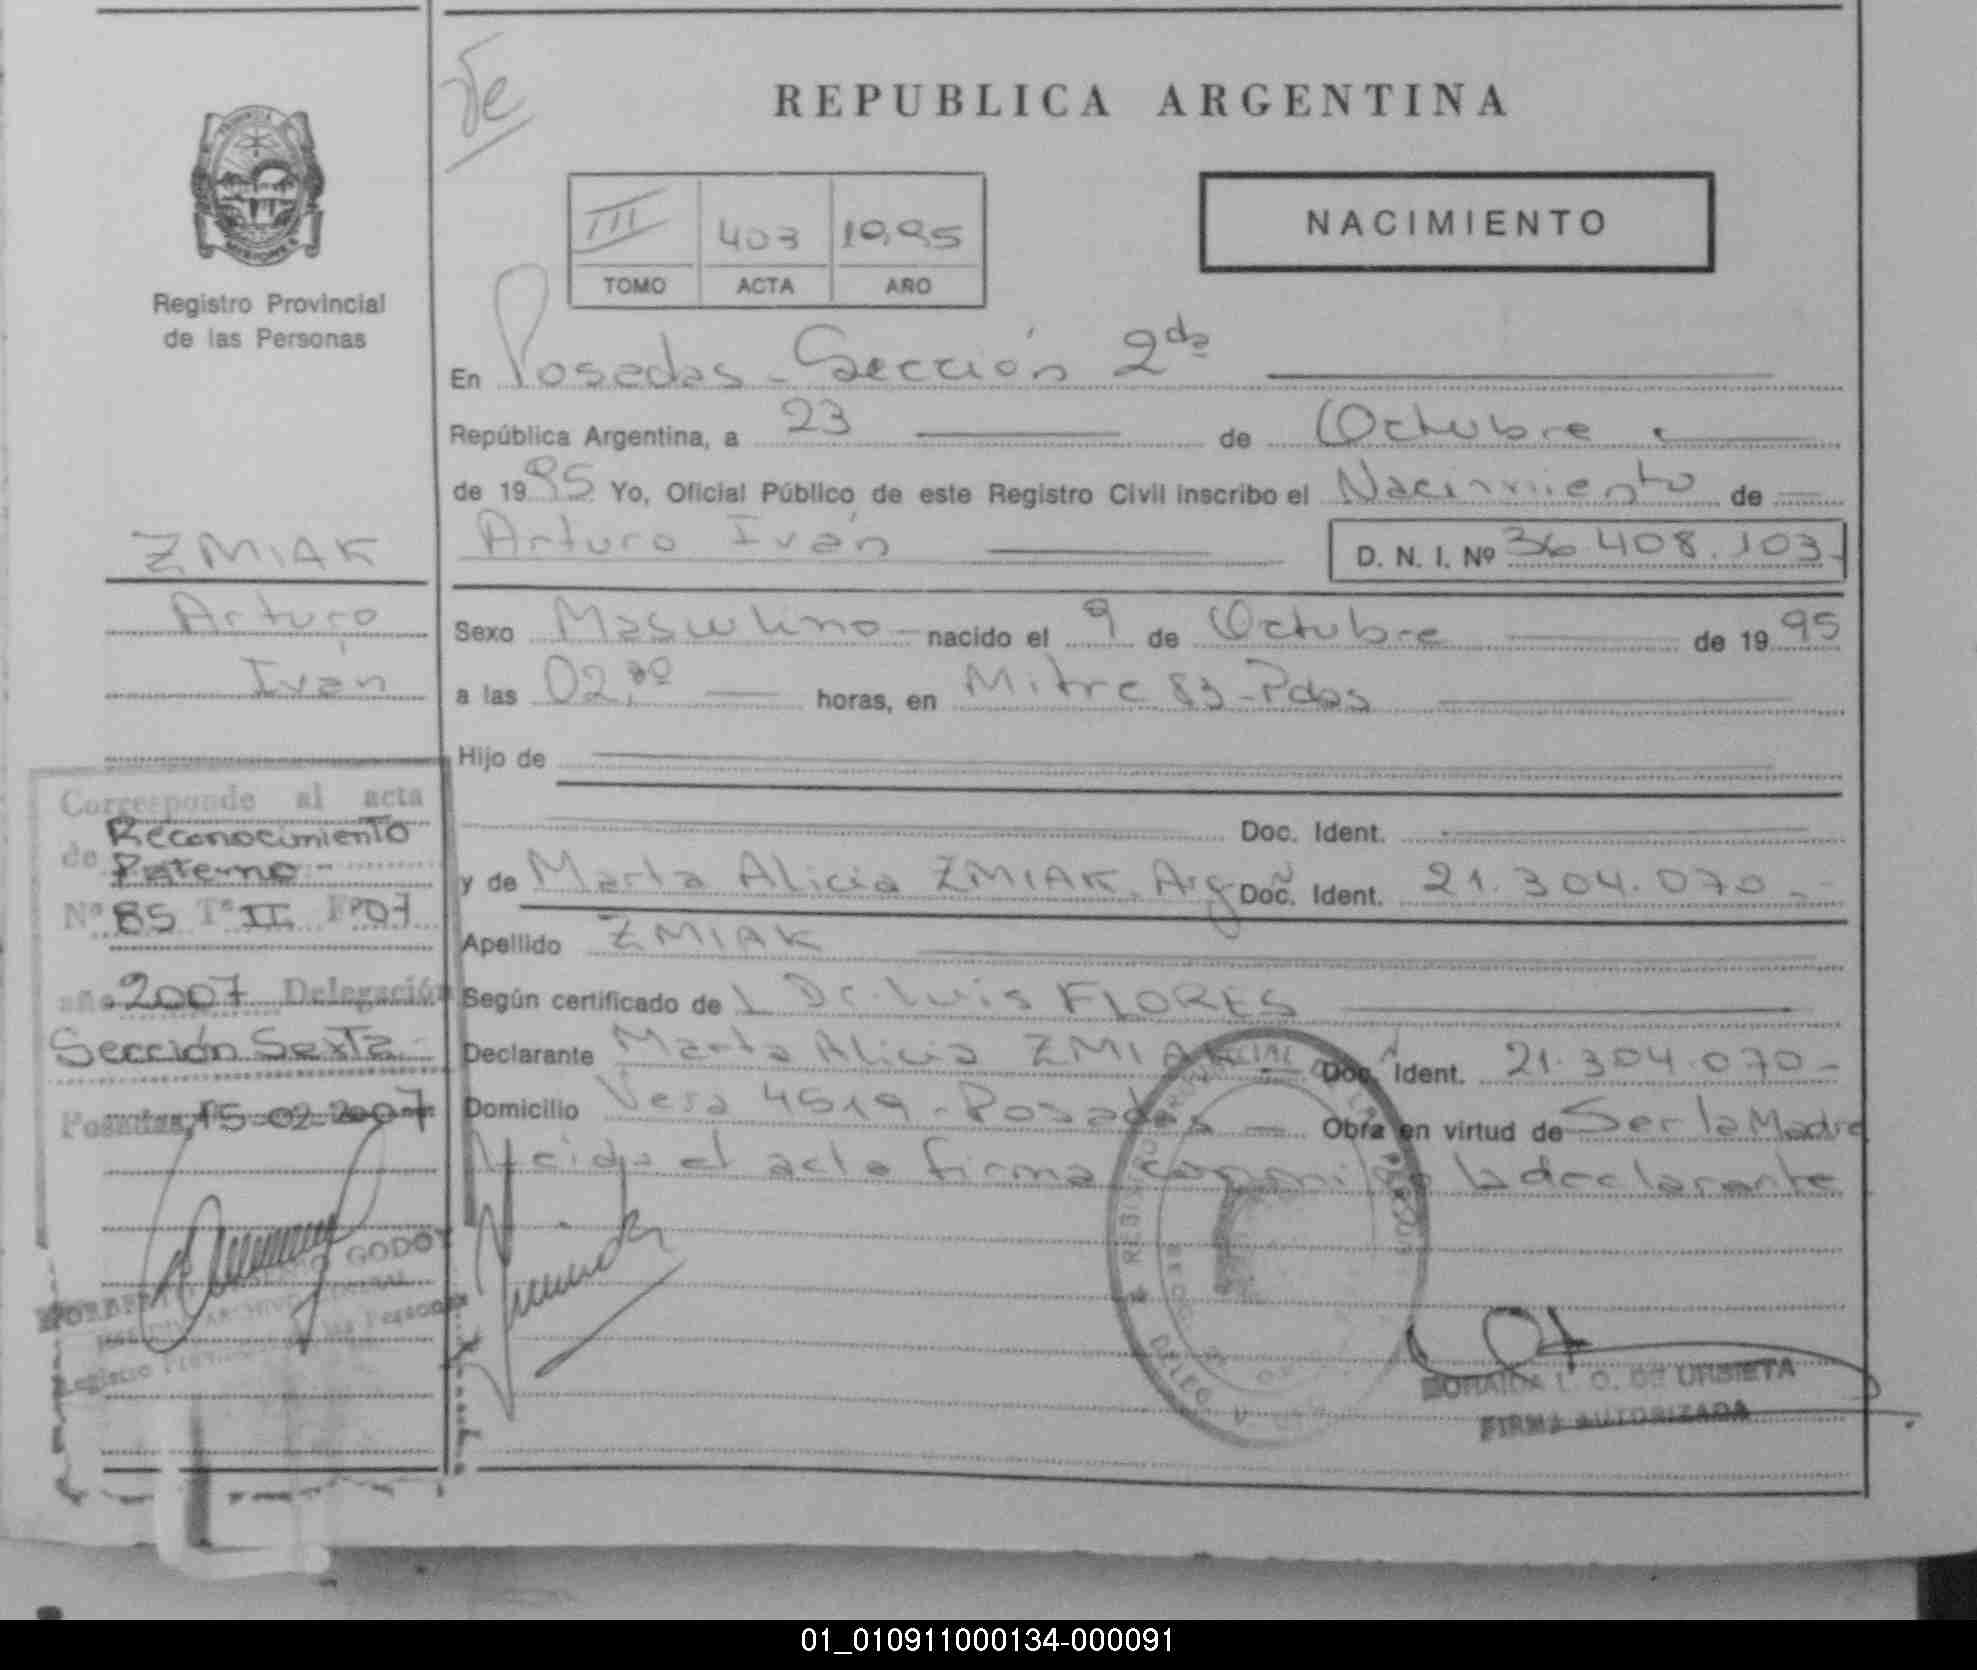 REPUBLICA ARGENTINA
NACIMIENTO
III 403 1995
TOMO ACTA AÑO
Registro Provincial
de las Personas
En Posadas - Sección 2da
República Argentina, a 23 de Octubre
de 1995 Yo, Oficial Público de este Registro Civil inscribo el Nacimiento de
Arturo Iván D. N. I. Nº 36.408.103
Sexo Masculino nacido el 9 de Octubre de 1995
a las 02,30 horas, en Mitre 83 - Pdas
Hijo de
Doc. Ident.
y de Marta Alicia ZMIAK, Arg Doc. Ident. 21.304.070
Apellido ZMIAK
Según certificado de L Dr. Luis FLORES
Declarante Marta Alicia ZMIAK Doc. Ident. 21.304.070
Domicilio Vera 4519 - Posadas Obra en virtud de Ser la Madre
Leida el acta firma conmigo la declarante
ZMIAK
Arturo
Iván
Corresponde al acta
de Reconocimiento
Paterno
Nº 85 Tº II Fº 07
año 2007 Delegación
Sección Sexta
Posadas, 15-02-2007
GODOY
ARCHIVO GENERAL
DE URBIETA
FIRMA AUTORIZADA
01_010911000134-000091